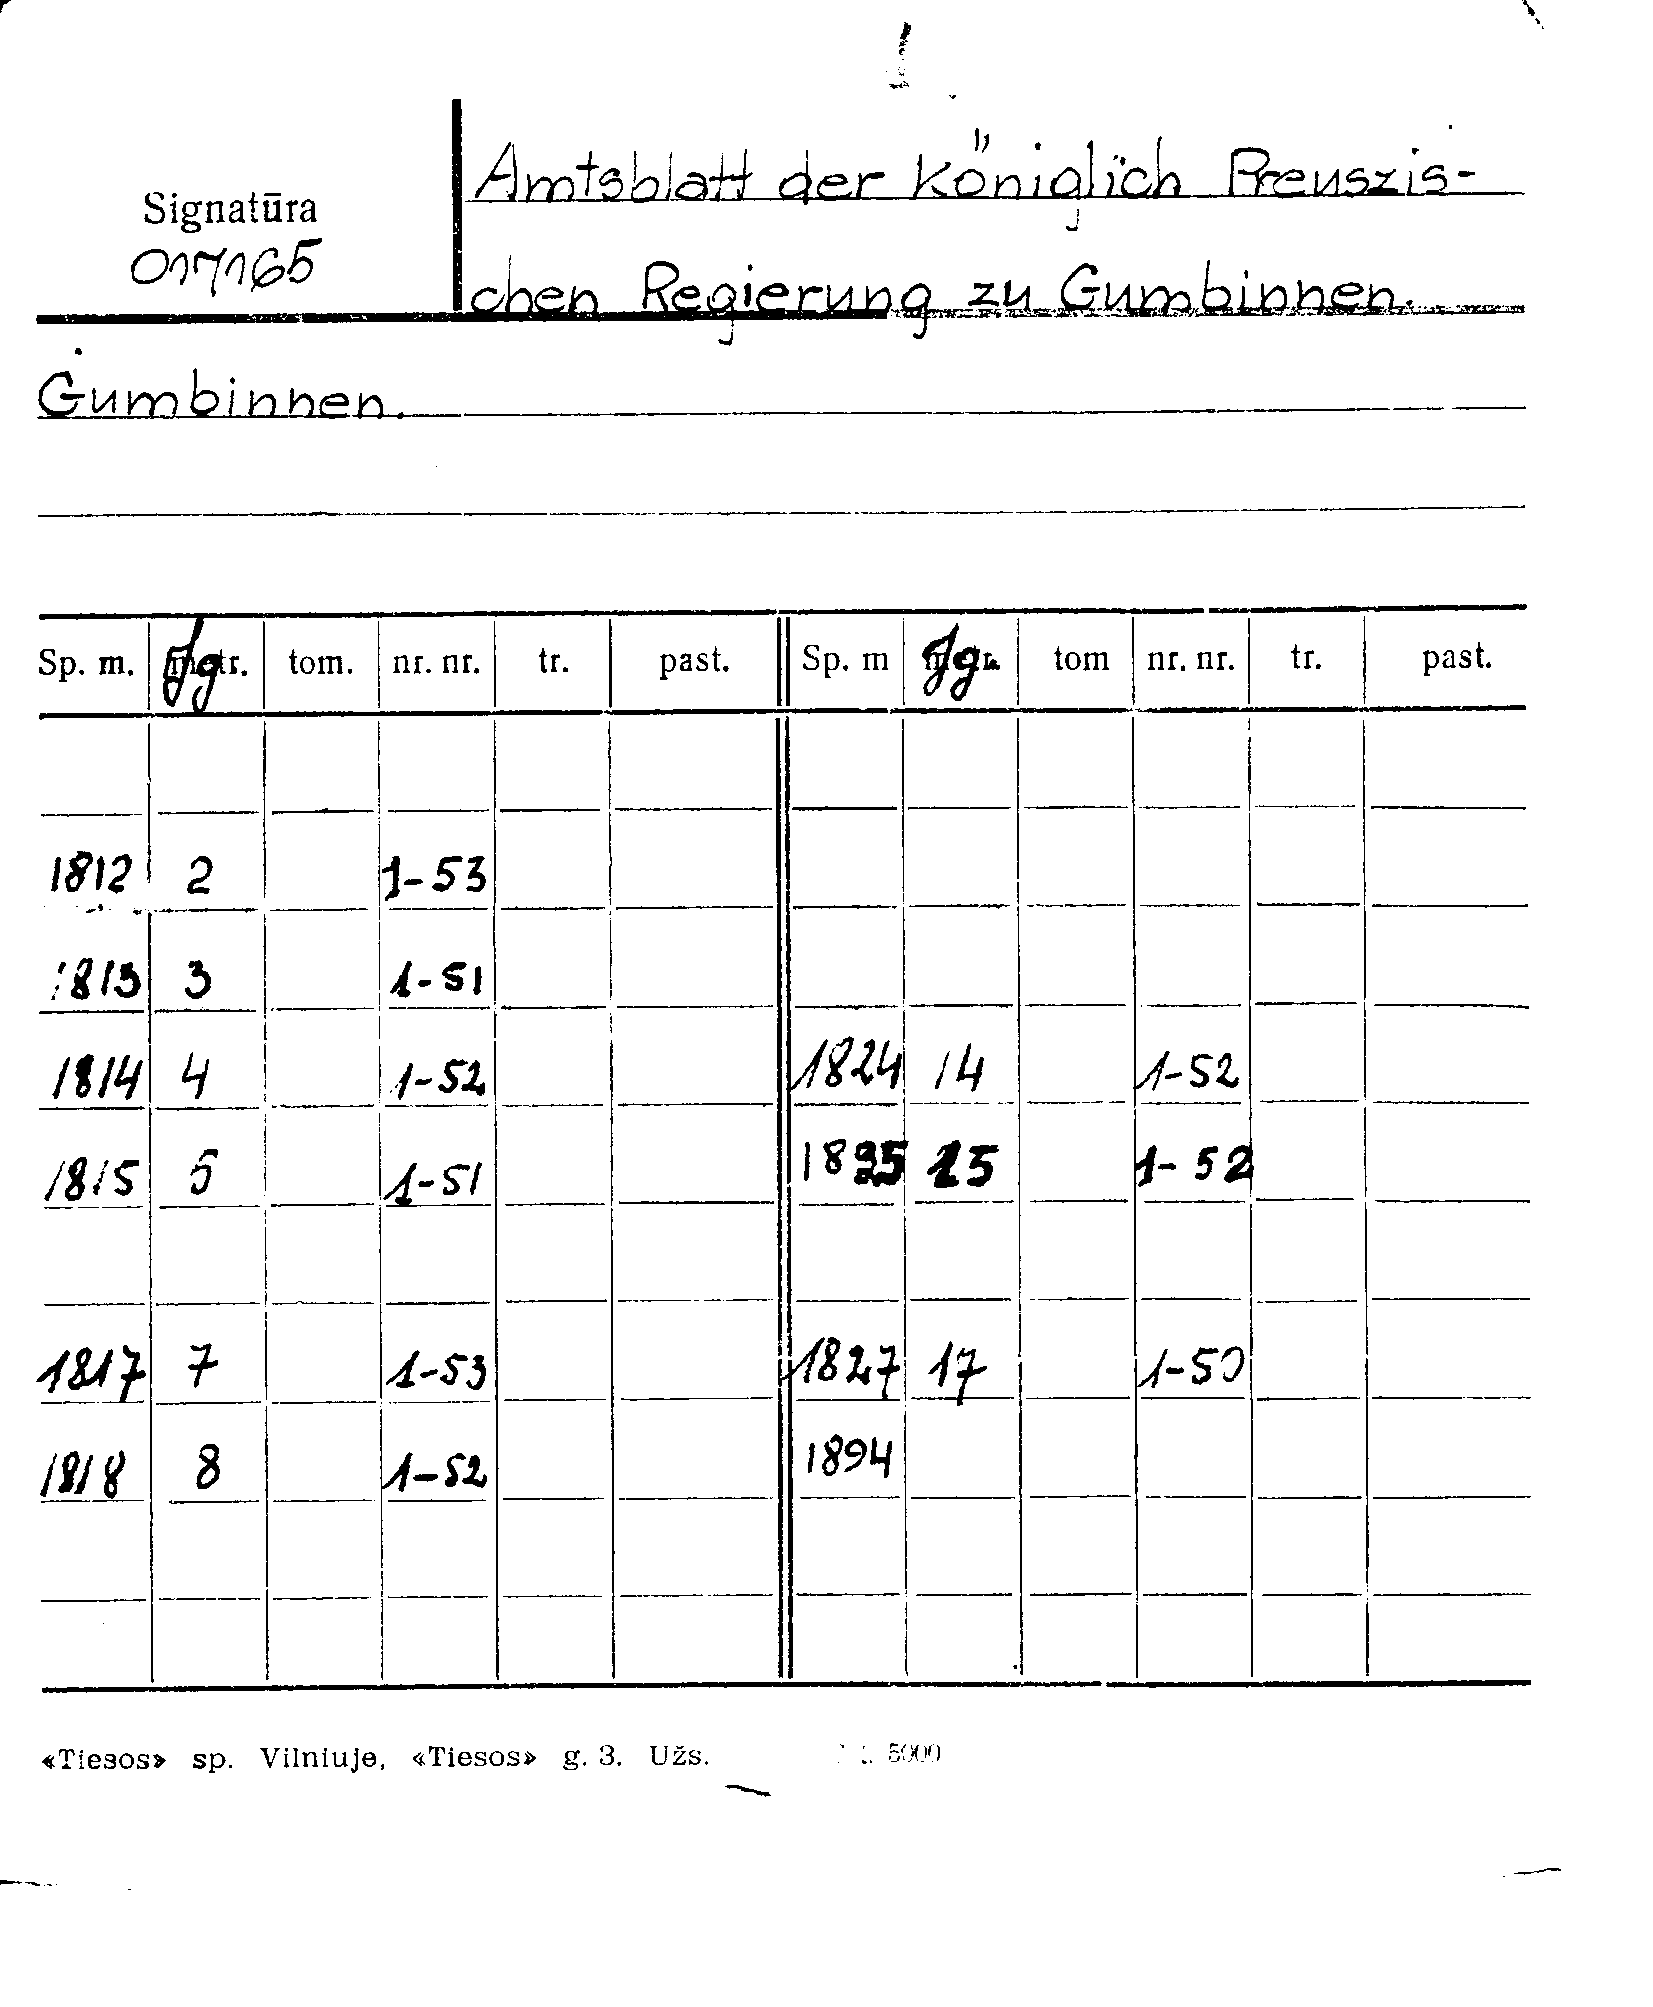 Amtsblatt der Königlich Preuszis-
Signatūra
017165
chen Regierung zu Gumbinnen.
Gumbinnen.
Sp. m. Jg tr. tom. nr. nr. tr. past. Sp. m Jg. tom nr. nr. tr. past.
1812 2 1-53
1813 3 1-51
1814 4 1-52 1824 14 1-52
1815 5 1-51 15 1-52
1817 7 1-53 1827 17 1-50
1818 8 1-52 1894
«Tiesos» sp. Vilniuje, «Tiesos» g. 3. Užs. 5000